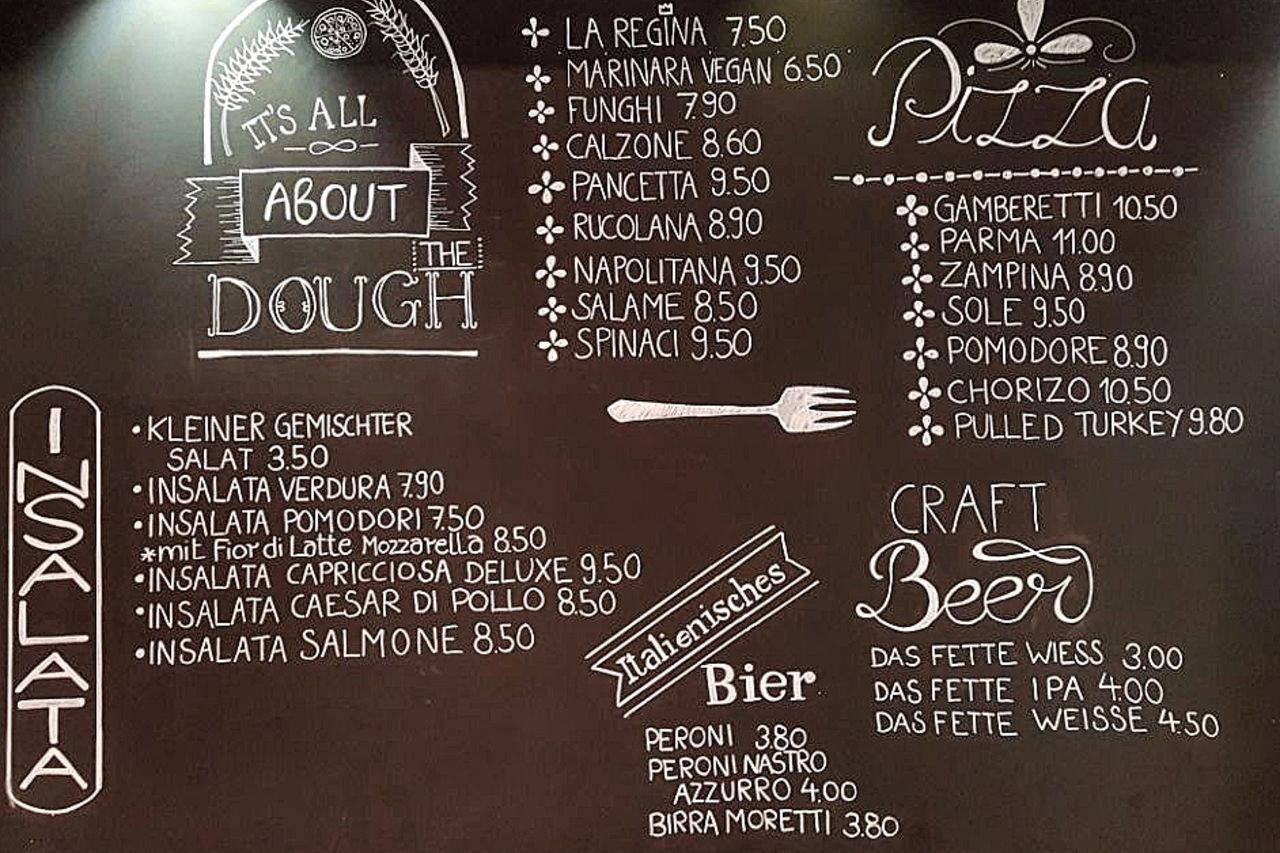 IT'S ALL
ABOUT
THE
DOUGH
LA REGINA 7.50
MARINARA VEGAN 6.50
FUNGHI 7.90
CALZONE 8.60
PANCETTA 9.50
RUCOLANA 8.90
NAPOLITANA 9.50
SALAME 8.50
SPINACI 9.50
Pizza
GAMBERETTI 10.50
PARMA 11.00
ZAMPINA 8.90
SOLE 9.50
POMODORE 8.90
CHORIZO 10.50
PULLED TURKEY 9.80
INSALATA
• KLEINER GEMISCHTER
SALAT 3.50
• INSALATA VERDURA 7.90
• INSALATA POMODORI 7.50
*mit Fior di Latte Mozzarella 8.50
• INSALATA CAPRICCIOSA DELUXE 9.50
• INSALATA CAESAR DI POLLO 8.50
• INSALATA SALMONE 8.50
Italienisches
Bier
PERONI 3.80
PERONI NASTRO
AZZURRO 4.00
BIRRA MORETTI 3.80
CRAFT
Beer
DAS FETTE WIESS 3.00
DAS FETTE IPA 4.00
DAS FETTE WEISSE 4.50